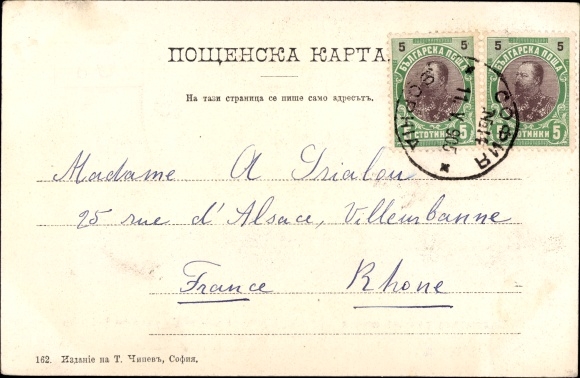 ПОЩЕНСКА КАРТА.
На тази страница се пише само адресътъ.
5 5
БЪЛГАРСКА ПОЩА
СТОТИНКИ 5
5 5
БЪЛГАРСКА ПОЩА
СТОТИНКИ 5
СОФИЯ
11 V 905
Madame A Drialou
25 rue d'Alsace, Villeurbanne
France Rhone
162. Издание на Т. Чипевъ, София.